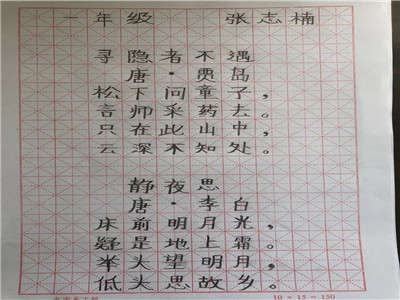 一年级 张志楠
寻隐者不遇
唐·贾岛
松下问童子，
言师采药去。
只在此山中，
云深不知处。
静夜思
唐·李白
床前明月光，
疑是地上霜。
举头望明月，
低头思故乡。
10×15=150